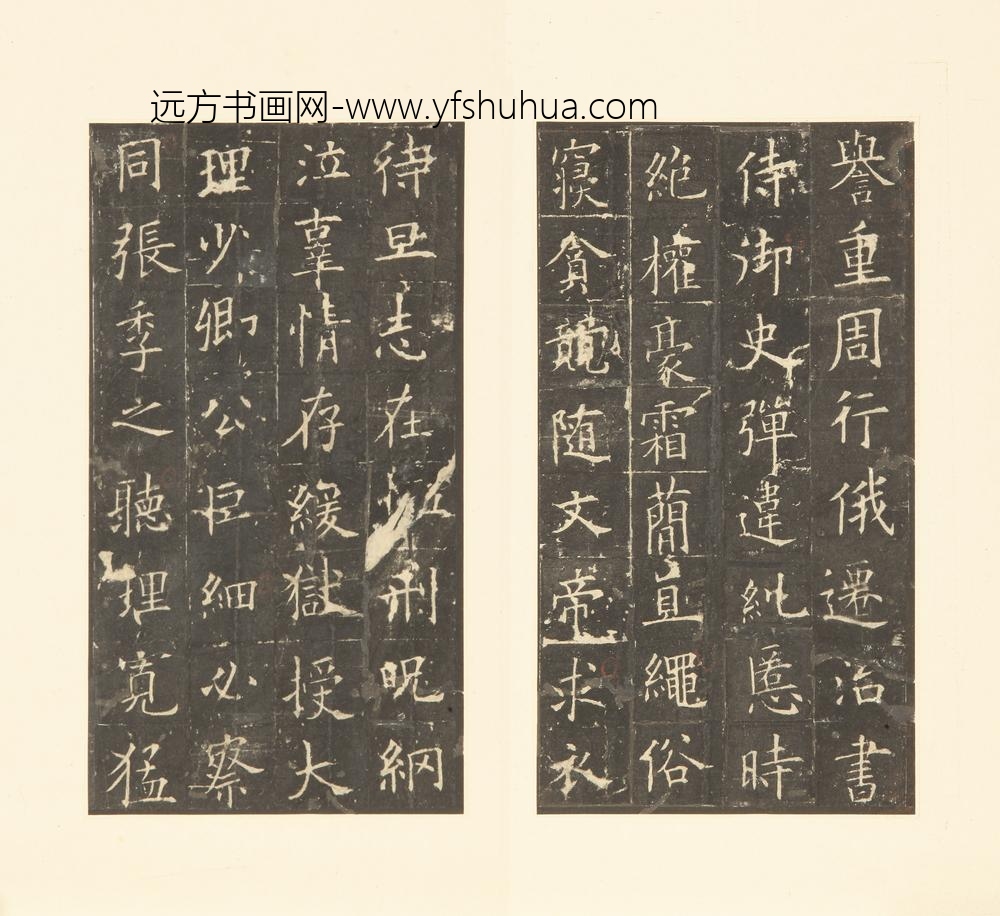 远方书画网-www.yfshuhua.com
譽重周行俄遷治書
侍御史彈違糺慝時
絶權豪霜簡直繩俗
寢貪競随文帝求衣
待旦志在刑呪網
泣辜情存緩獄授大
理少卿公巨細必察
同張季之聽理寬猛